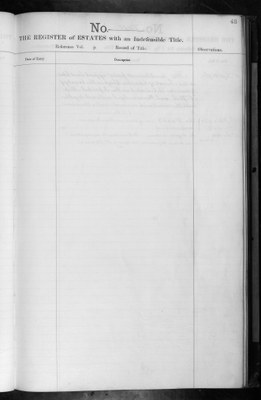 63
No.
THE REGISTER of ESTATES with an Indefeasible Title.
Reference Vol. Record of Title. Observations.
Date of Entry. Description